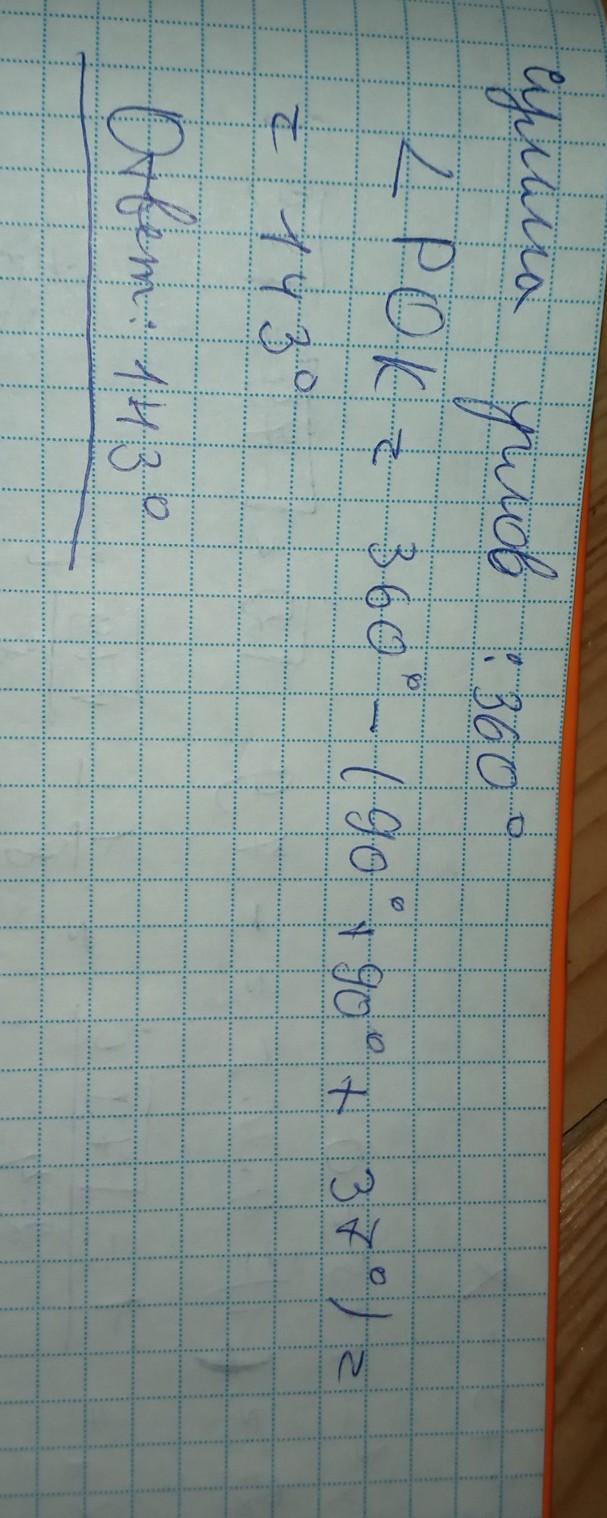 сумма углов : 360°
∠ РОК = 360° - (90° + 90° + 37°) =
= 143°
Ответ: 143°